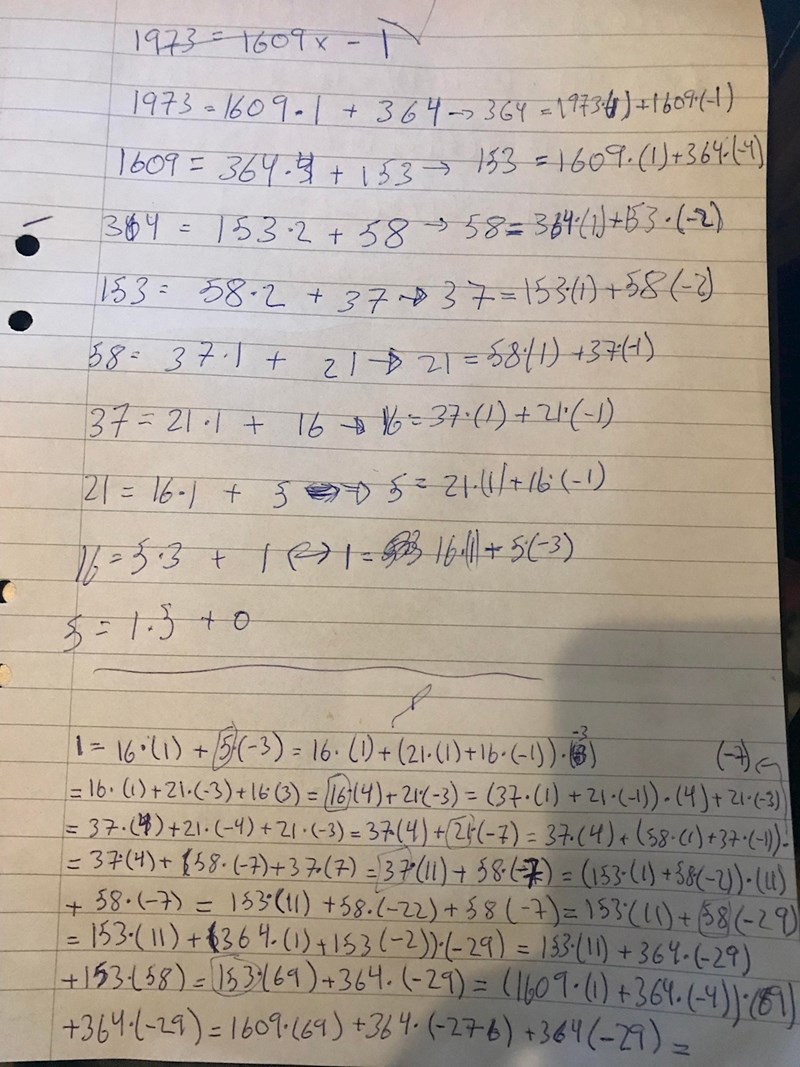 1973 = 1609x - 1
1973 = 1609·1 + 364 → 364 = 1973·(1) + 1609·(-1)
1609 = 364·4 + 153 → 153 = 1609·(1) + 364·(-4)
364 = 153·2 + 58 → 58 = 364·(1) + 153·(-2)
153 = 58·2 + 37 → 37 = 153·(1) + 58(-2)
58 = 37·1 + 21 → 21 = 58·(1) + 37·(-1)
37 = 21·1 + 16 → 16 = 37·(1) + 21·(-1)
21 = 16·1 + 5 → 5 = 21·(1) + 16·(-1)
16 = 5·3 + 1 ↔ 1 = 16·(1) + 5(-3)
5 = 1·5 + 0
1 = 16·(1) + 5·(-3) = 16·(1) + (21·(1) + 16·(-1))·(-3)
= 16·(1) + 21·(-3) + 16(3) = 16·(4) + 21·(-3) = (37·(1) + 21·(-1))·(4) + 21·(-3)
= 37·(4) + 21·(-4) + 21·(-3) = 37(4) + 21·(-7) = 37·(4) + (58·(1) + 37·(-1))·(-7)
= 37(4) + 58·(-7) + 37·(7) = 37·(11) + 58·(-7) = (153·(1) + 58(-2))·(11)
+ 58·(-7) = 153·(11) + 58·(-22) + 58(-7) = 153·(11) + 58(-29)
= 153·(11) + (364·(1) + 153(-2))·(-29) = 153·(11) + 364·(-29)
+ 153·(58) = 153·(69) + 364·(-29) = (1609·(1) + 364·(-4))·(69)
+ 364·(-29) = 1609·(69) + 364·(-276) + 364(-29) =